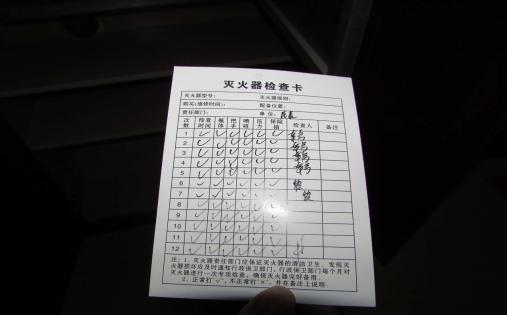 灭火器检查卡
灭火器型号： 灭火器级别：
购买（维修时间）： 配备位置：
责任部门： 单位：
次数 检查时间 瓶体 把手 喷咀 压力 保险销 检查人 备注
1 ✓ ✓ ✓ ✓ ✓ ✓
2 ✓ ✓ ✓ ✓ ✓ ✓
3 ✓ ✓ ✓ ✓ ✓ ✓
4 ✓ ✓ ✓ ✓ ✓ ✓
5 ✓ ✓ ✓ ✓ ✓ ✓
6 ✓ ✓ ✓ ✓ ✓ ✓
7 ✓ ✓ ✓ ✓ ✓ ✓
8 ✓ ✓ ✓ ✓ ✓ ✓
9 ✓ ✓ ✓ ✓ ✓ ✓
10 ✓ ✓ ✓ ✓ ✓ ✓
11 ✓ ✓ ✓ ✓ ✓ ✓
12 ✓ ✓ ✓ ✓ ✓ ✓
注：1、灭火器责任部门应保证灭火器的清洁卫生，发现灭
火器损坏应及时通知行政保卫部门，行政保卫部门每个月对
灭火器进行一次专项检查，确保灭火器完好备用。
2、正常打"✓"，不正常打"×"，并在备注上说明。